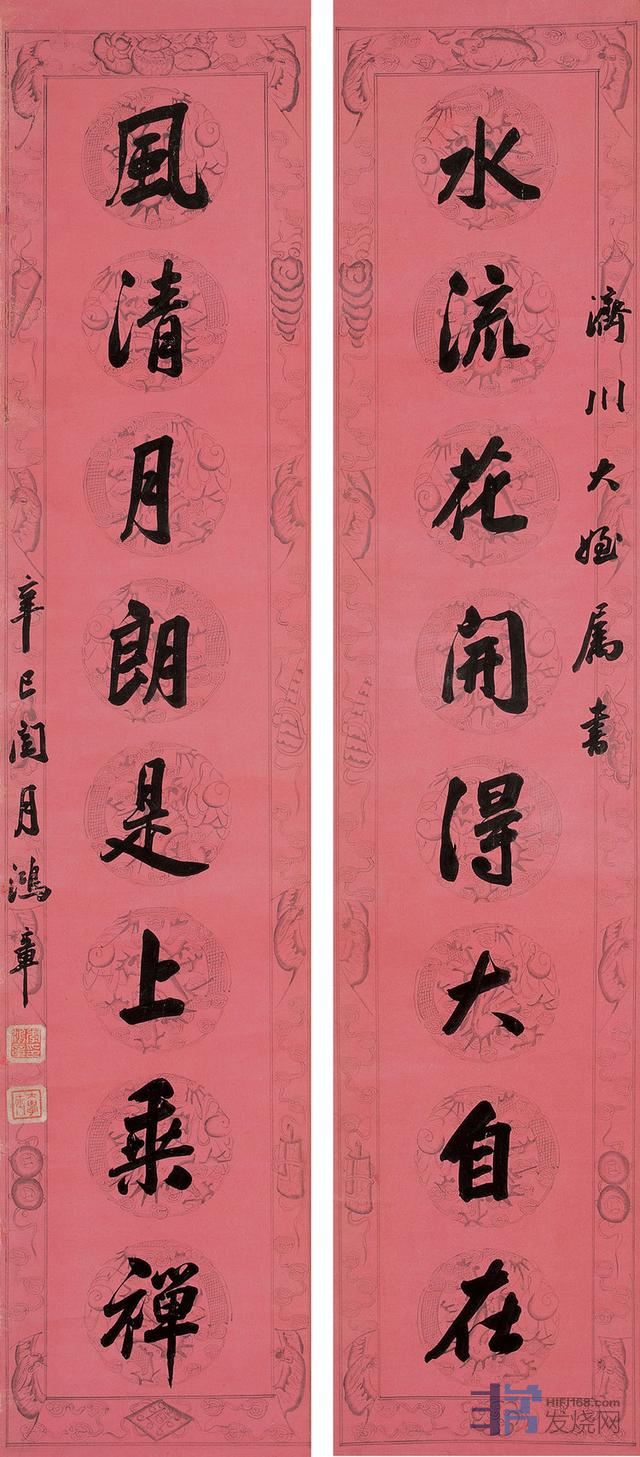 濟川大姪属書
水流花開得大自在
風清月朗是上乘禪
辛巳閏月鴻章
HIFI168.com
发烧网